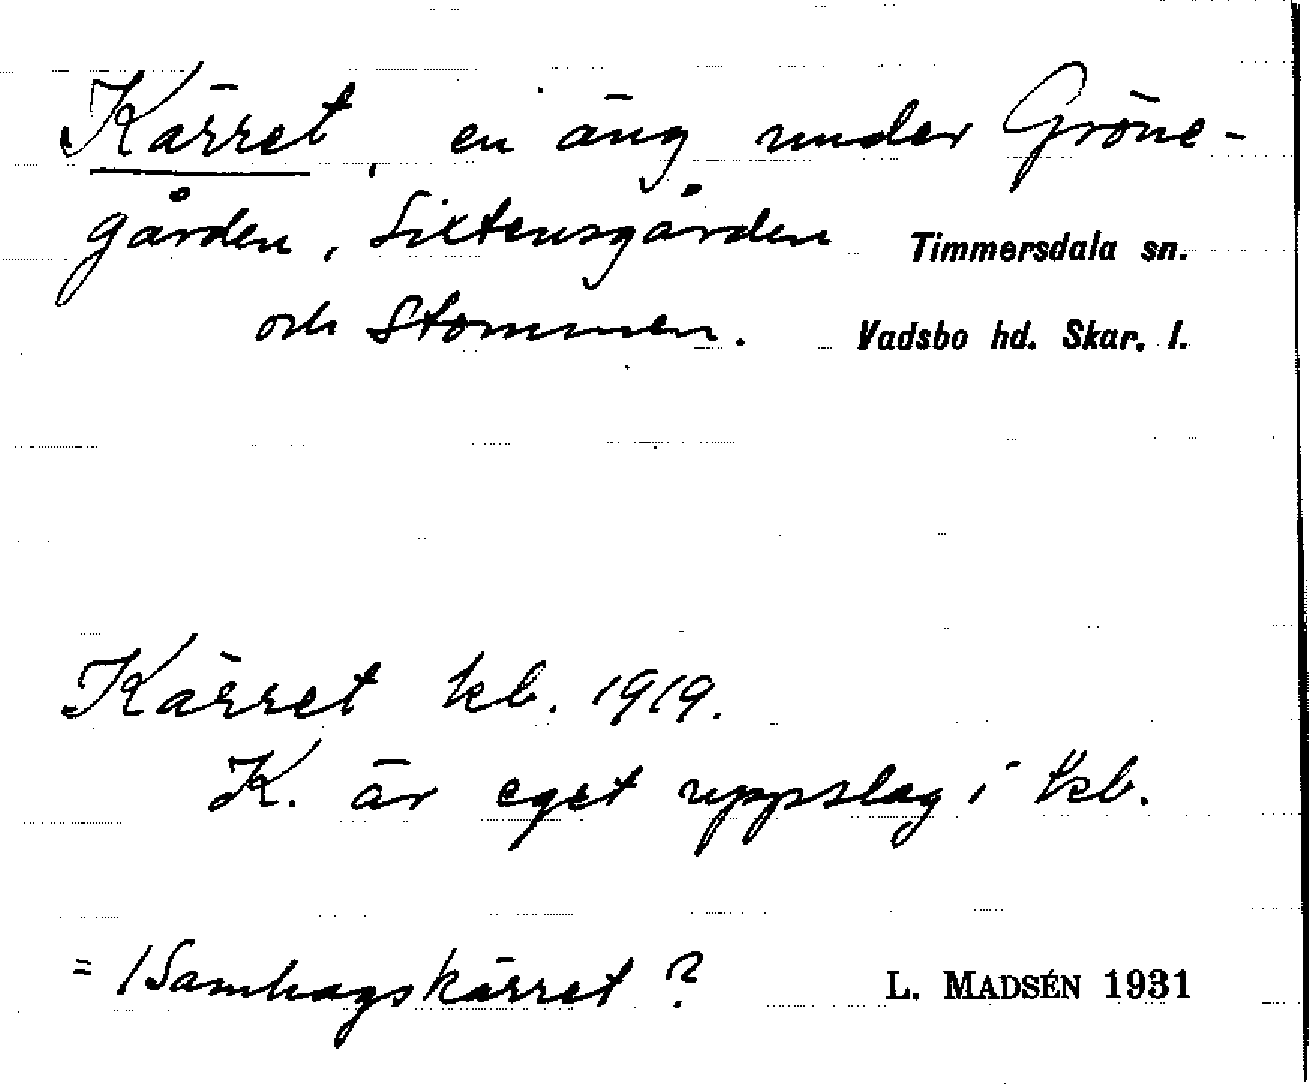 Kärret, en äng under Gröne-
gården, Sixtensgården Timmersdala sn.
och Stommen. Vadsbo hd. Skar. l.
Kärret kb. 1919.
K. är eget uppslag i kb.
= /Samhagskärret?
L. MADSÉN 1931